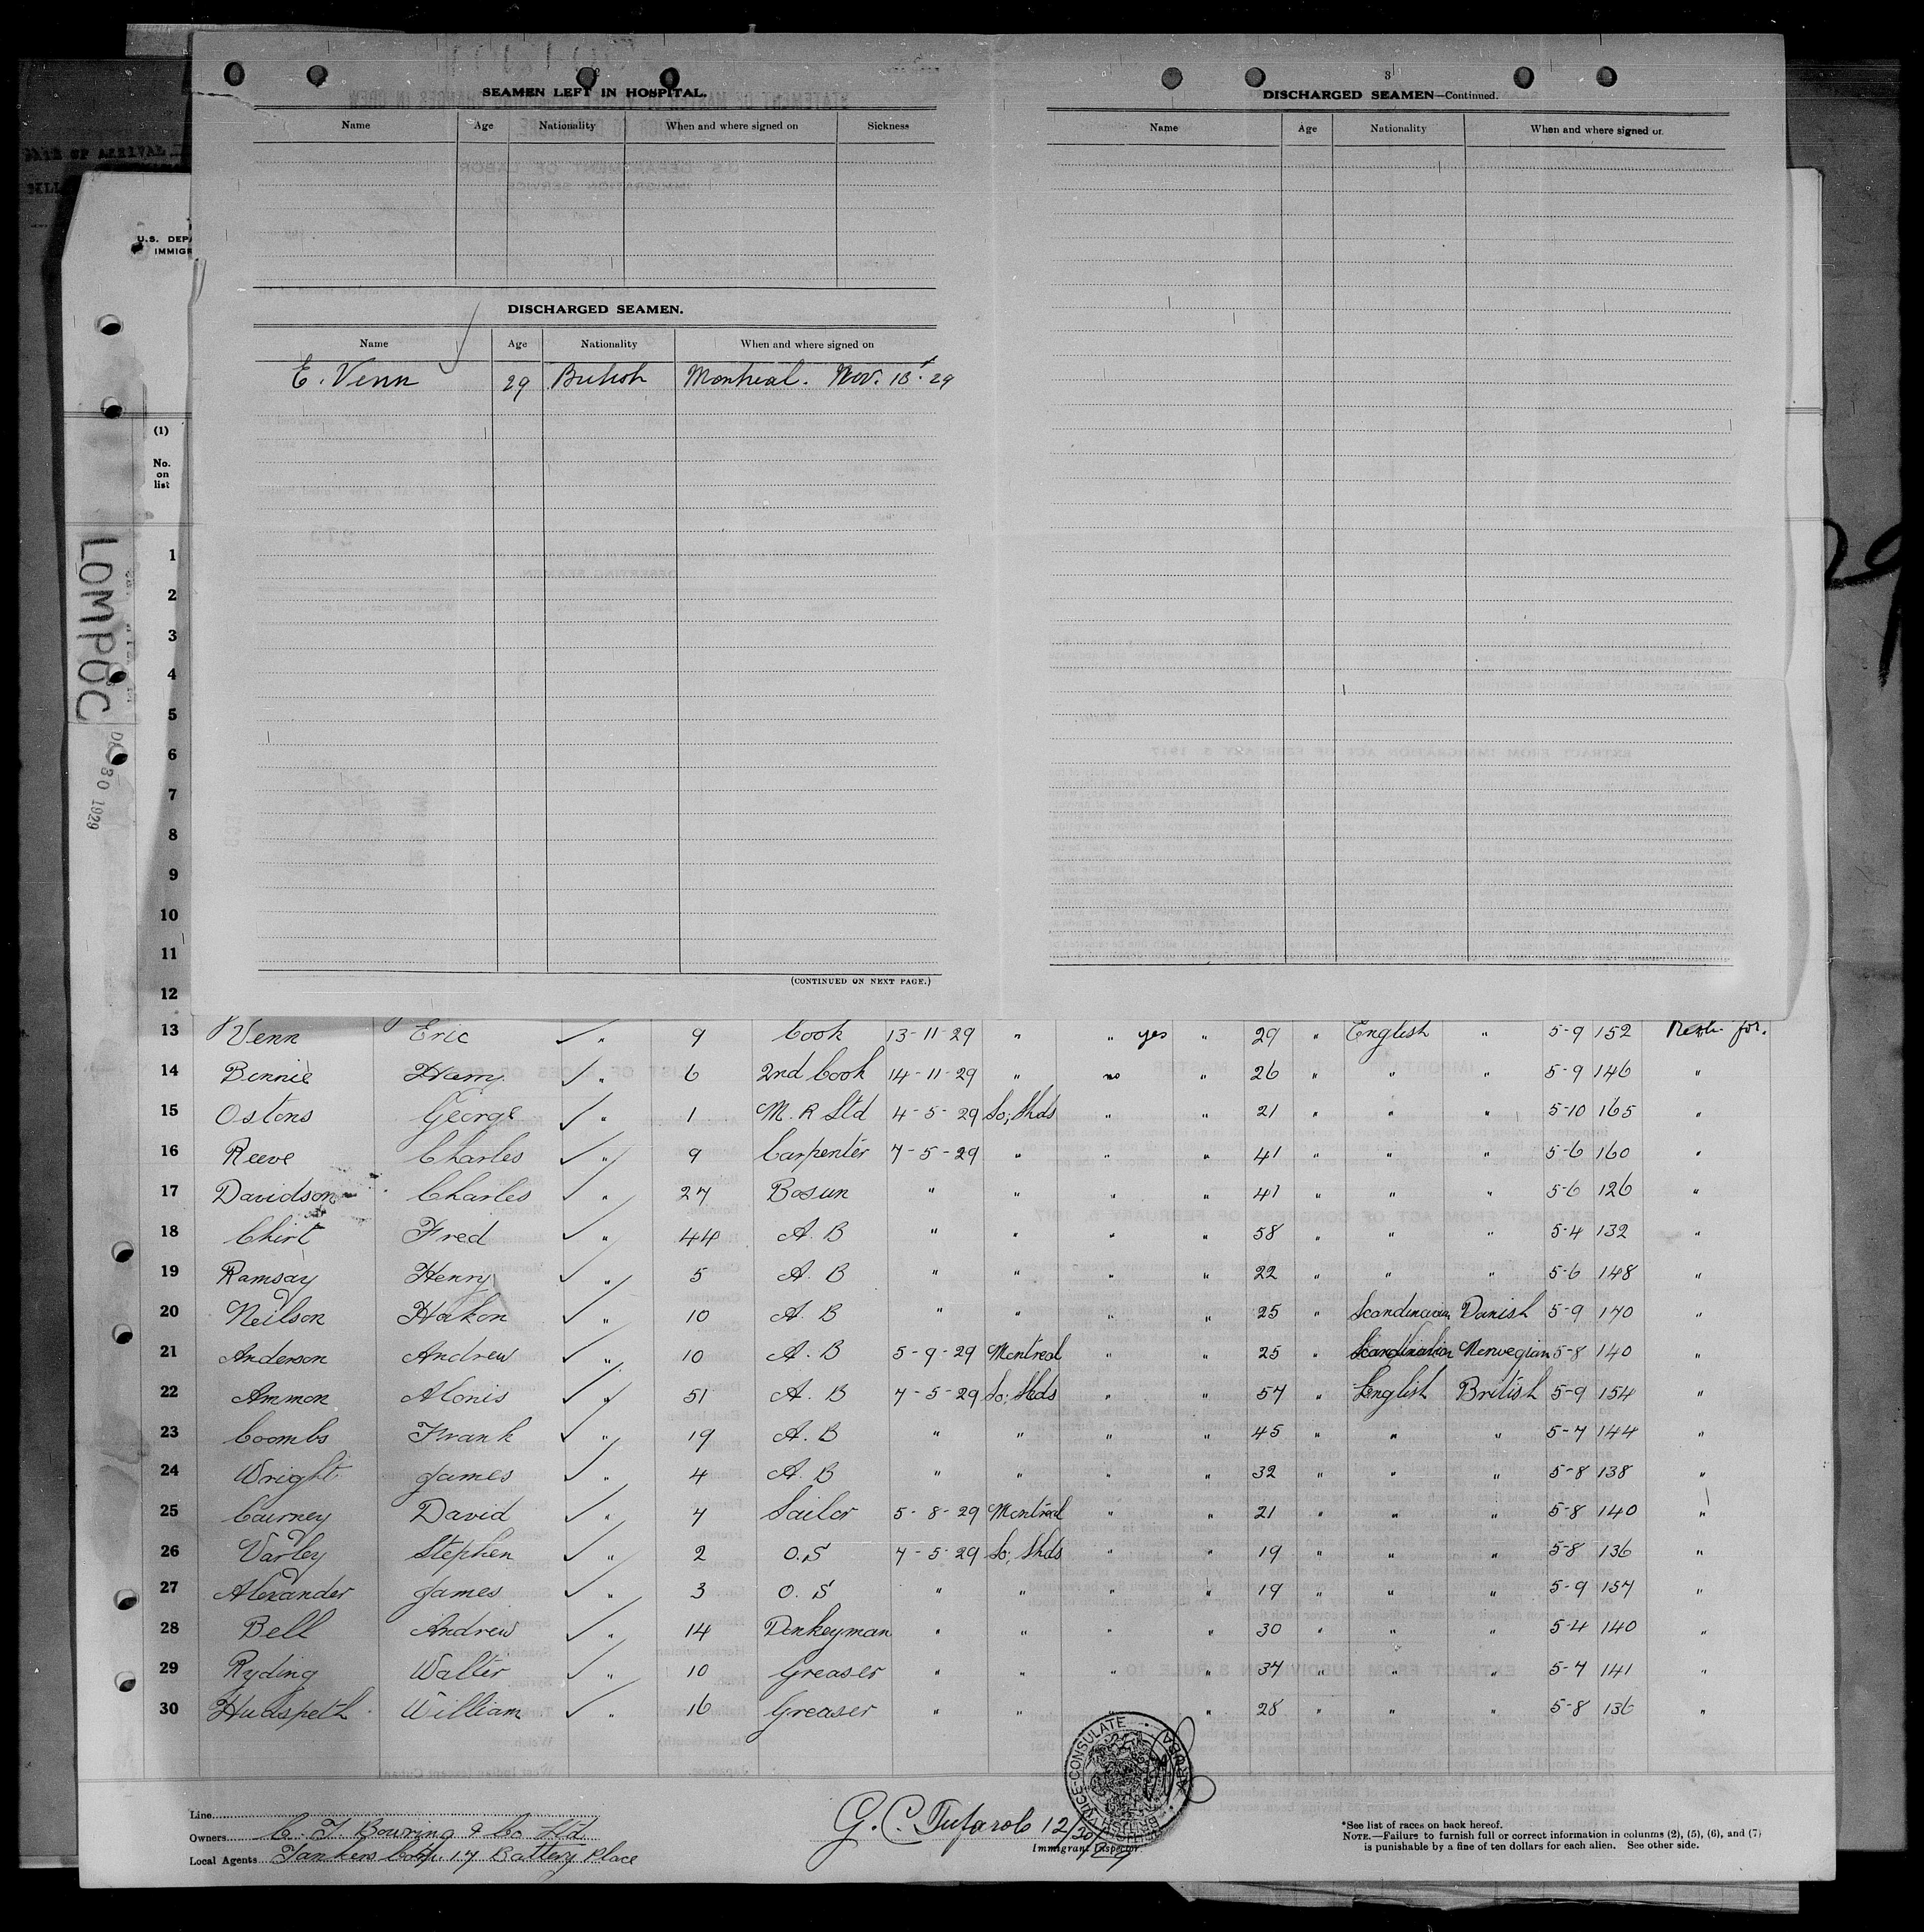 SEAMEN LEFT IN HOSPITAL.
Name Age Nationality When and where signed on Sickness
DISCHARGED SEAMEN.
Name Age Nationality When and where signed on
E. Venn 29 British Montreal. Nov. 13. 29
(CONTINUED ON NEXT PAGE.)
3
DISCHARGED SEAMEN—Continued.
Name Age Nationality When and where signed on
U.S. DEPA
IMMIGR
(1)
No.
on
list
LOMPOC
30 1929
1
2
3
4
5
6
7
8
9
10
11
12
13 Venn Eric ✓ " 9 Cook 13-11-29 " " yes " 29 " English " 5-9 152
14 Bennie Harry ✓ " 6 2nd Cook 14-11-29 " no " 26 " " " 5-9 146 "
15 Ostons George ✓ " 1 M. R Std 4-5-29 So; Shds " " 21 " " " 5-10 165 "
16 Reeve Charles ✓ " 9 Carpenter 7-5-29 " " " 41 " " " 5-6 160 "
17 Davidson Charles ✓ " 27 Bosun " " " " 41 " " " 5-6 126 "
18 Chirt Fred ✓ " 44 A. B " " " " 58 " " " 5-4 132 "
19 Ramsay Henry ✓ " 5 A. B " " " " 22 " " " 5-6 148 "
20 Neilson Hakon ✓ " 10 A. B " " " " 25 " Scandinavian Danish 5-9 170 "
21 Anderson Andrew ✓ " 10 A. B 5-9-29 Montreal " " 25 " Scandinavian Norwegian 5-8 140 "
22 Ammon Alonis ✓ " 51 A. B 7-5-29 So; Shds " " 57 " English British 5-9 154 "
23 Coombs Frank ✓ " 19 A. B " " " " 45 " " " 5-7 144 "
24 Wright James ✓ " 4 A. B " " " " 32 " " " 5-8 138 "
25 Cairney David ✓ " 4 Sailor 5-8-29 Montreal " " 21 " " " 5-8 140 "
26 Varley Stephen ✓ " 2 O.S 7-5-29 So; Shds " " 19 " " " 5-8 136 "
27 Alexander James ✓ " 3 O. S " " " " 19 " " " 5-9 157 "
28 Bell Andrew ✓ " 14 Donkeyman " " " " 30 " " " 5-4 140 "
29 Ryding Walter ✓ " 10 Greaser " " " " 37 " " " 5-7 141 "
30 Hudspeth William ✓ " 16 Greaser " " " 28 " " " 5-8 136 "
BRITISH VICE-CONSULATE ARUBA
Line
Owners C. T. Bowring & Co Ltd
Local Agents Tankers Corp. 17 Battery Place
G. C. Tufarolo 12/30/29
Immigrant Inspector
*See list of races on back hereof.
NOTE.—Failure to furnish full or correct information in columns (2), (5), (6), and (7)
is punishable by a fine of ten dollars for each alien. See other side.